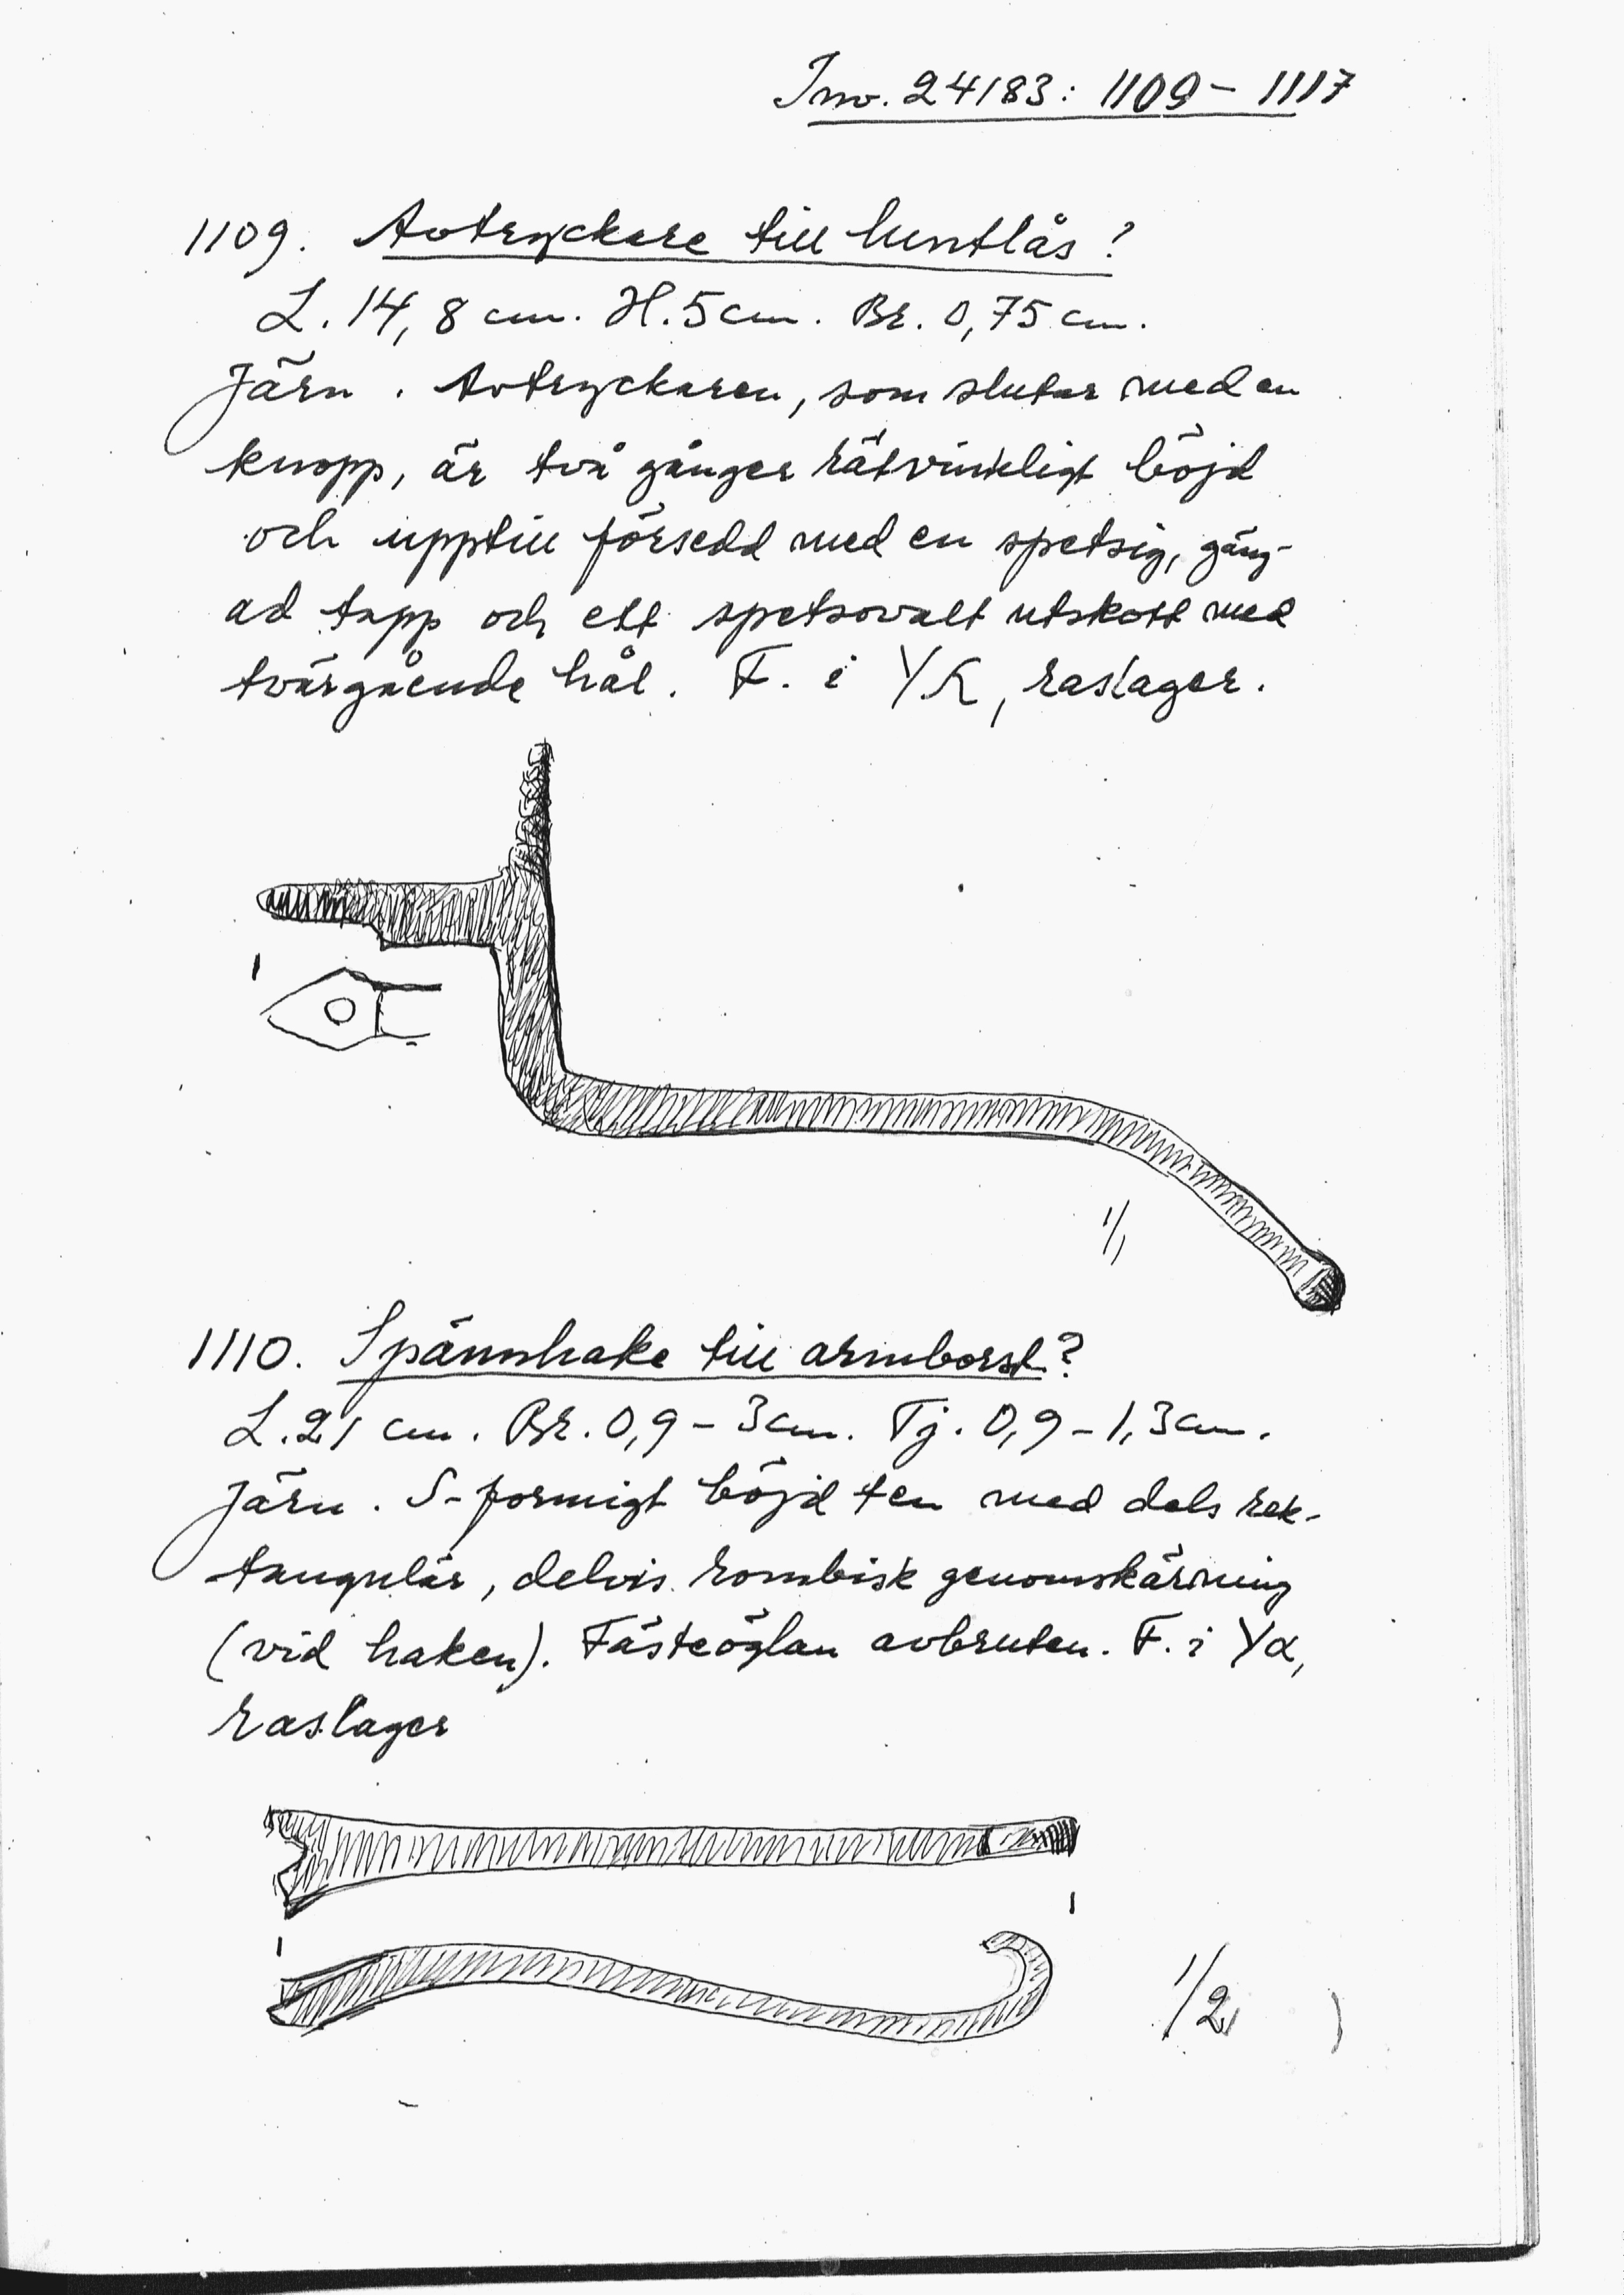 Inv. 24183: 1109 – 1117
1109. Avtryckare till luntlås?
L. 14,8 cm. H. 5 cm. Br. 0,75 cm.
Järn. Avtryckaren, som slutar med en
knopp, är två gånger rätvinkligt böjd
och upptill försedd med en spetsig, gäng-
ad tapp och ett spetsovalt utskott med
tvärgående hål. F. i YK, raslager.
1/1
1110. Spännhake till armborst?
L. 21 cm. Br. 0,9 – 3 cm. Tj. 0,9 – 1,3 cm.
Järn. S-formigt böjd ten med dels rek-
tangulär, delvis rombisk genomskärning
(vid haken). Fästeöglan avbruten. F. i Yα,
raslager
1/2